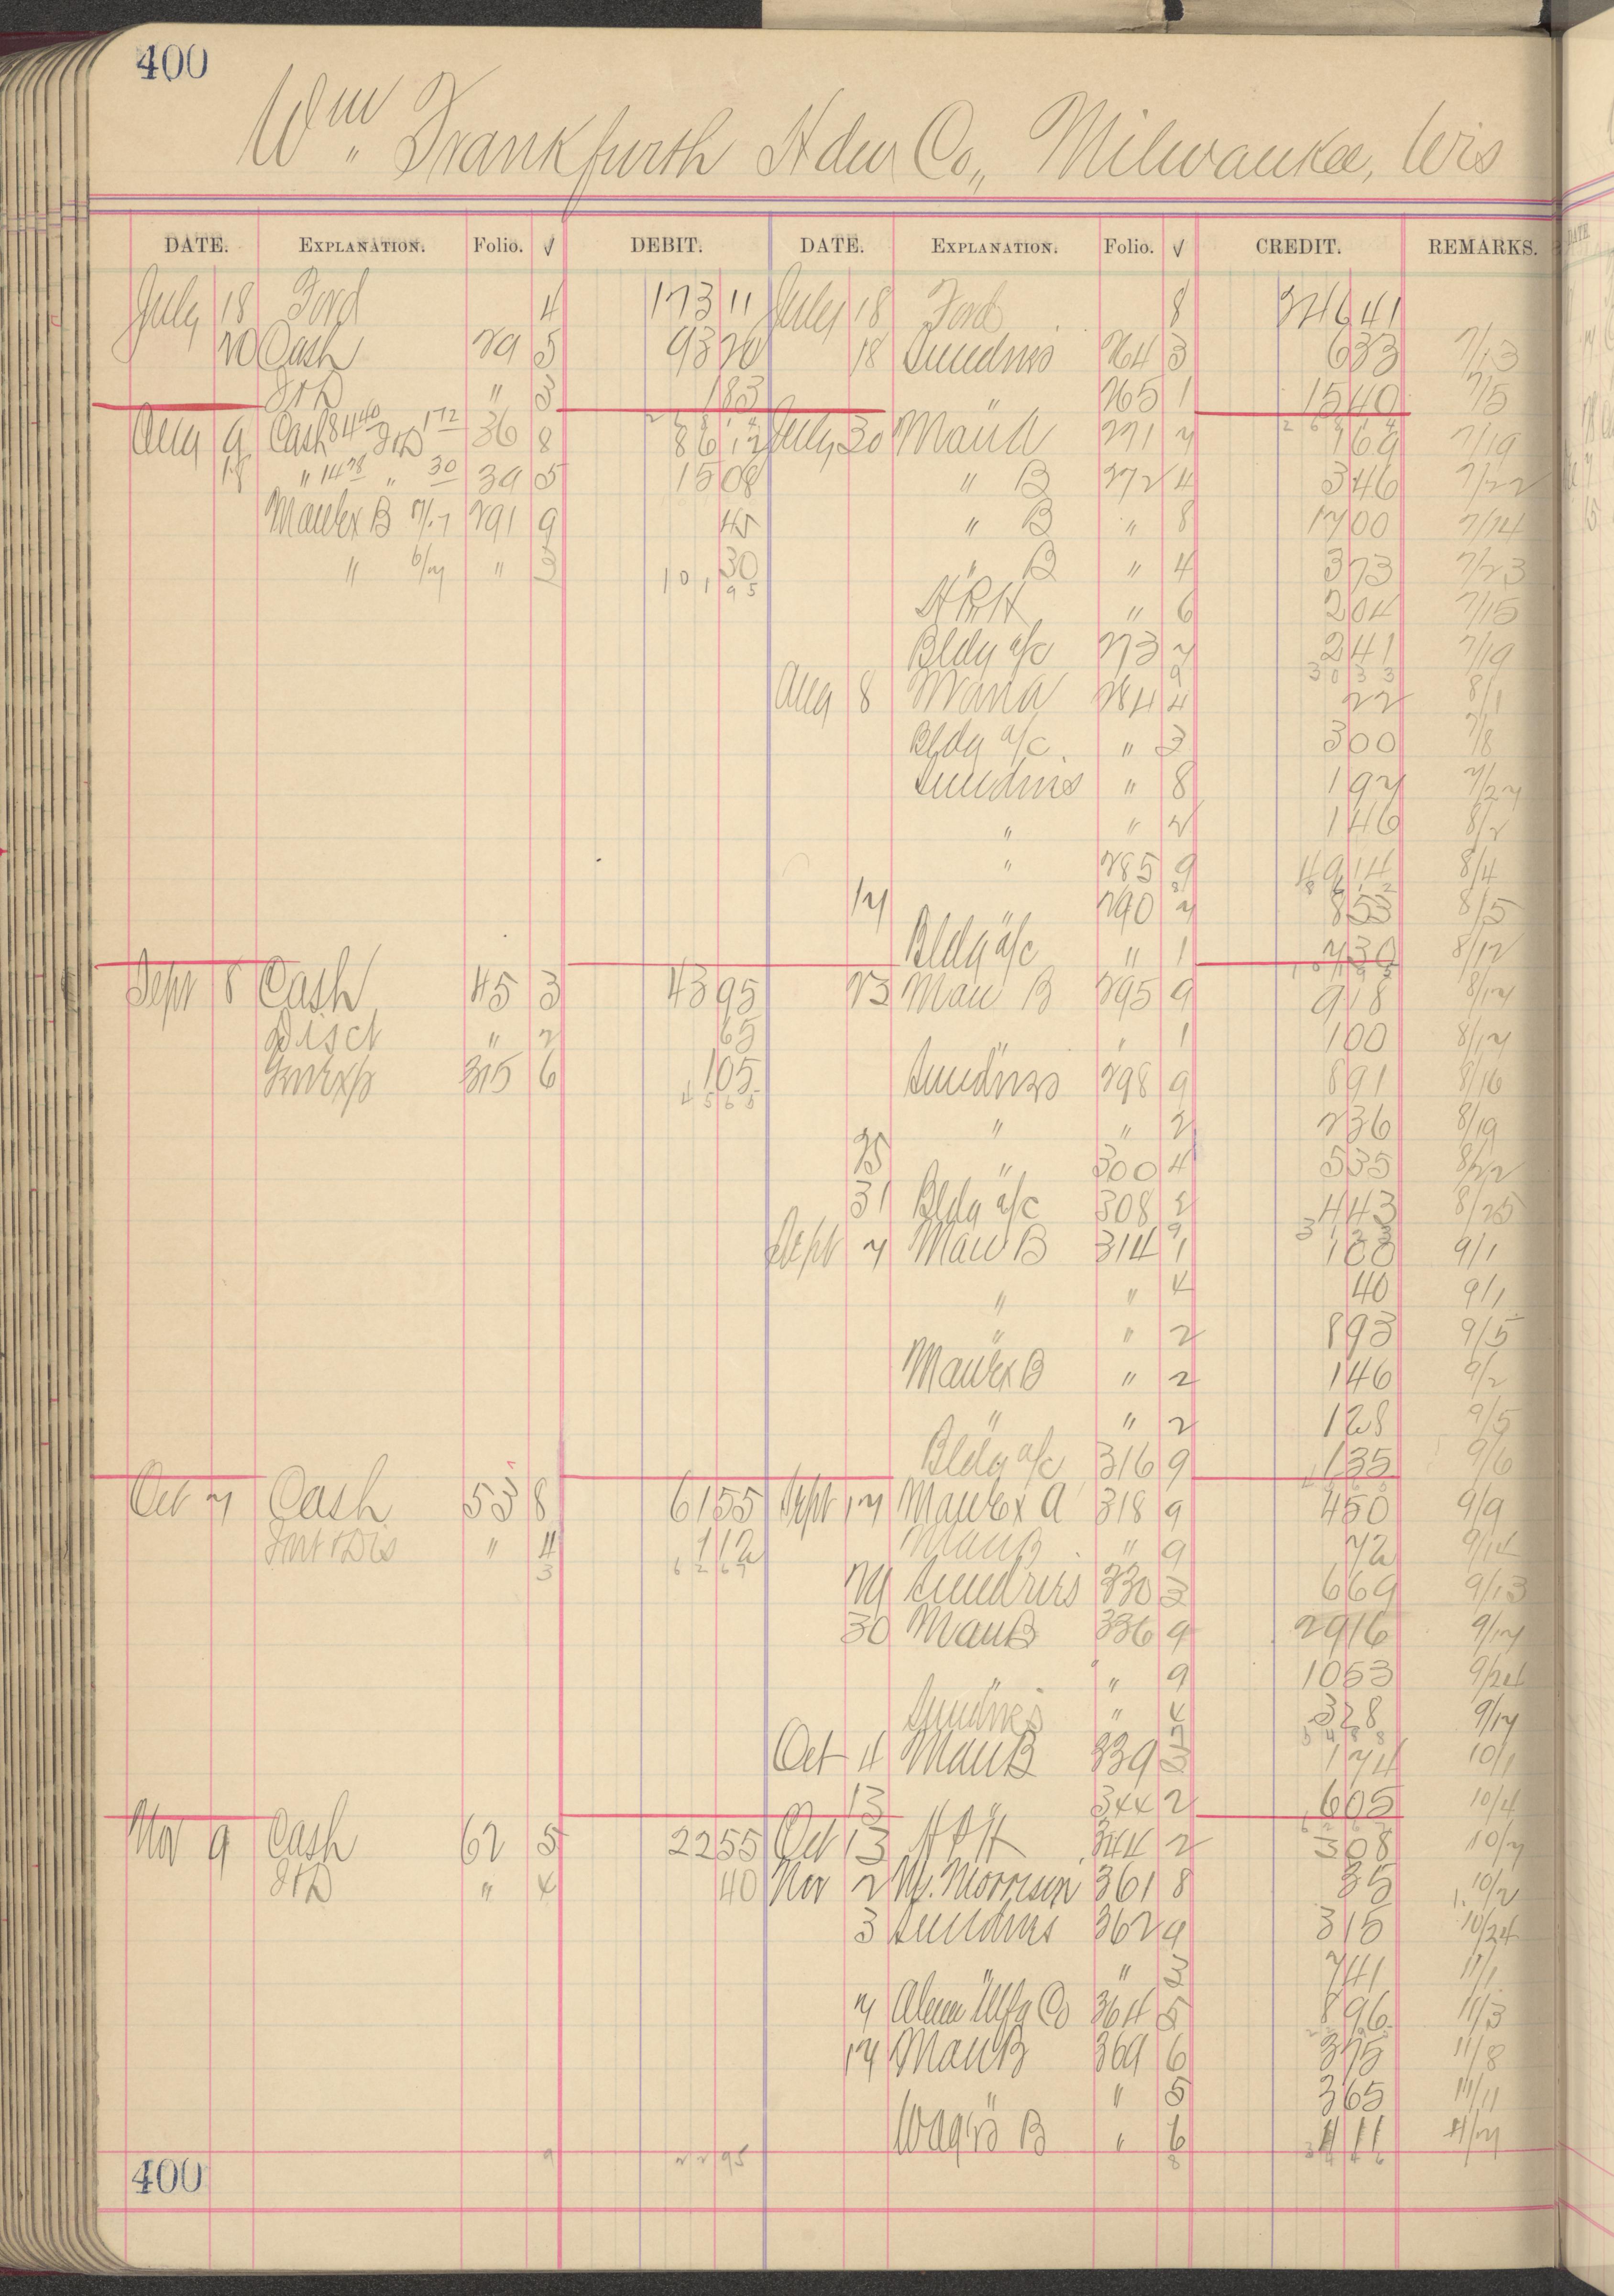 400
Wm. Frankfurth Hdw Co., Milwaukee, Wis
DATE. EXPLANATION. Folio. √ DEBIT. DATE. EXPLANATION. Folio. √ CREDIT. REMARKS.
July 18 Ford 4 173 11 July 18 Ford 8 246 41
20 Cash 29 5 93 20 18 Sundries 264 3 6 33 7/13
I&D " 3 1 83 " 265 1 15 40 7/5
Aug 9 Cash 84 40 I&D 1 72 36 8 86 12 July 30 Man A 271 7 1 69 7/19
18 " 14 78 " 30 39 5 15 08 " B 272 4 3 46 7/22
Manex B 7/7 291 9 45 " B " 8 17 00 7/14
" 6/7 " 3 30 " B " 4 3 73 7/23
101 95
H R H " 6 2 04 7/15
Bldg a/c 273 7 2 41 7/19
30 33
Aug 8 Man A 284 4 22 8/1
Bldg a/c " 3 3 00 7/8
Sundries " 8 1 97 7/27
" " 2 1 46 8/2
" 285 9 49 14 8/4
17 " 290 7 8 53 8/5
Bldg a/c " 1 7 30 8/12
Sept 8 Cash 45 3 43 95 23 Man B 295 9 9 18 8/17
Disct " 2 65 " " 1 1 00 8/17
Gen Exp 315 6 1 05 Sundries 298 9 8 91 8/16
45 65
" " 2 2 36 8/19
25 " 300 4 5 35 8/22
31 Bldg a/c 308 2 4 43 8/25
31 23
Sept 7 Man B 314 1 1 00 9/1
" " 4 40 9/1
" " 2 8 93 9/5
Manex B " 2 1 46 9/2
" " 2 1 28 9/5
Bldg a/c 316 9 1 35 9/6
Oct 7 Cash 53 8 61 55 Sept 17 Manex A 318 9 4 50 9/9
Int & Dis " 4 1 12 Man B " 9 72 9/14
3 62 67
27 Sundries 330 3 6 69 9/13
30 Man B 336 9 29 16 9/17
" " 9 10 53 9/24
Sundries " 4 3 28 9/17
54 88
Oct 4 Man B 339 3 1 74 10/1
13 " 344 2 6 05 10/4
Nov 9 Cash 62 5 22 55 Oct 13 H R H 344 2 3 08 10/7
I&D " 4 40 Nov 2 W. Morrison 361 8 35 10/2
3 Sundries 362 9 3 15 10/24
" " 3 7 41 11/1
7 Alum Mfg Co 364 5 8 96 11/3
17 Man B 369 6 3 75 11/8
" " 5 3 65 11/11
Wages B " 6 4 11 11/7
9 22 95 8 34 46
400